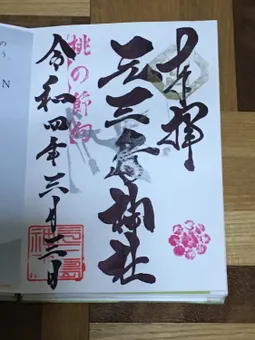 奉拝
元三島神社
桃の節句
令和四年三月三日